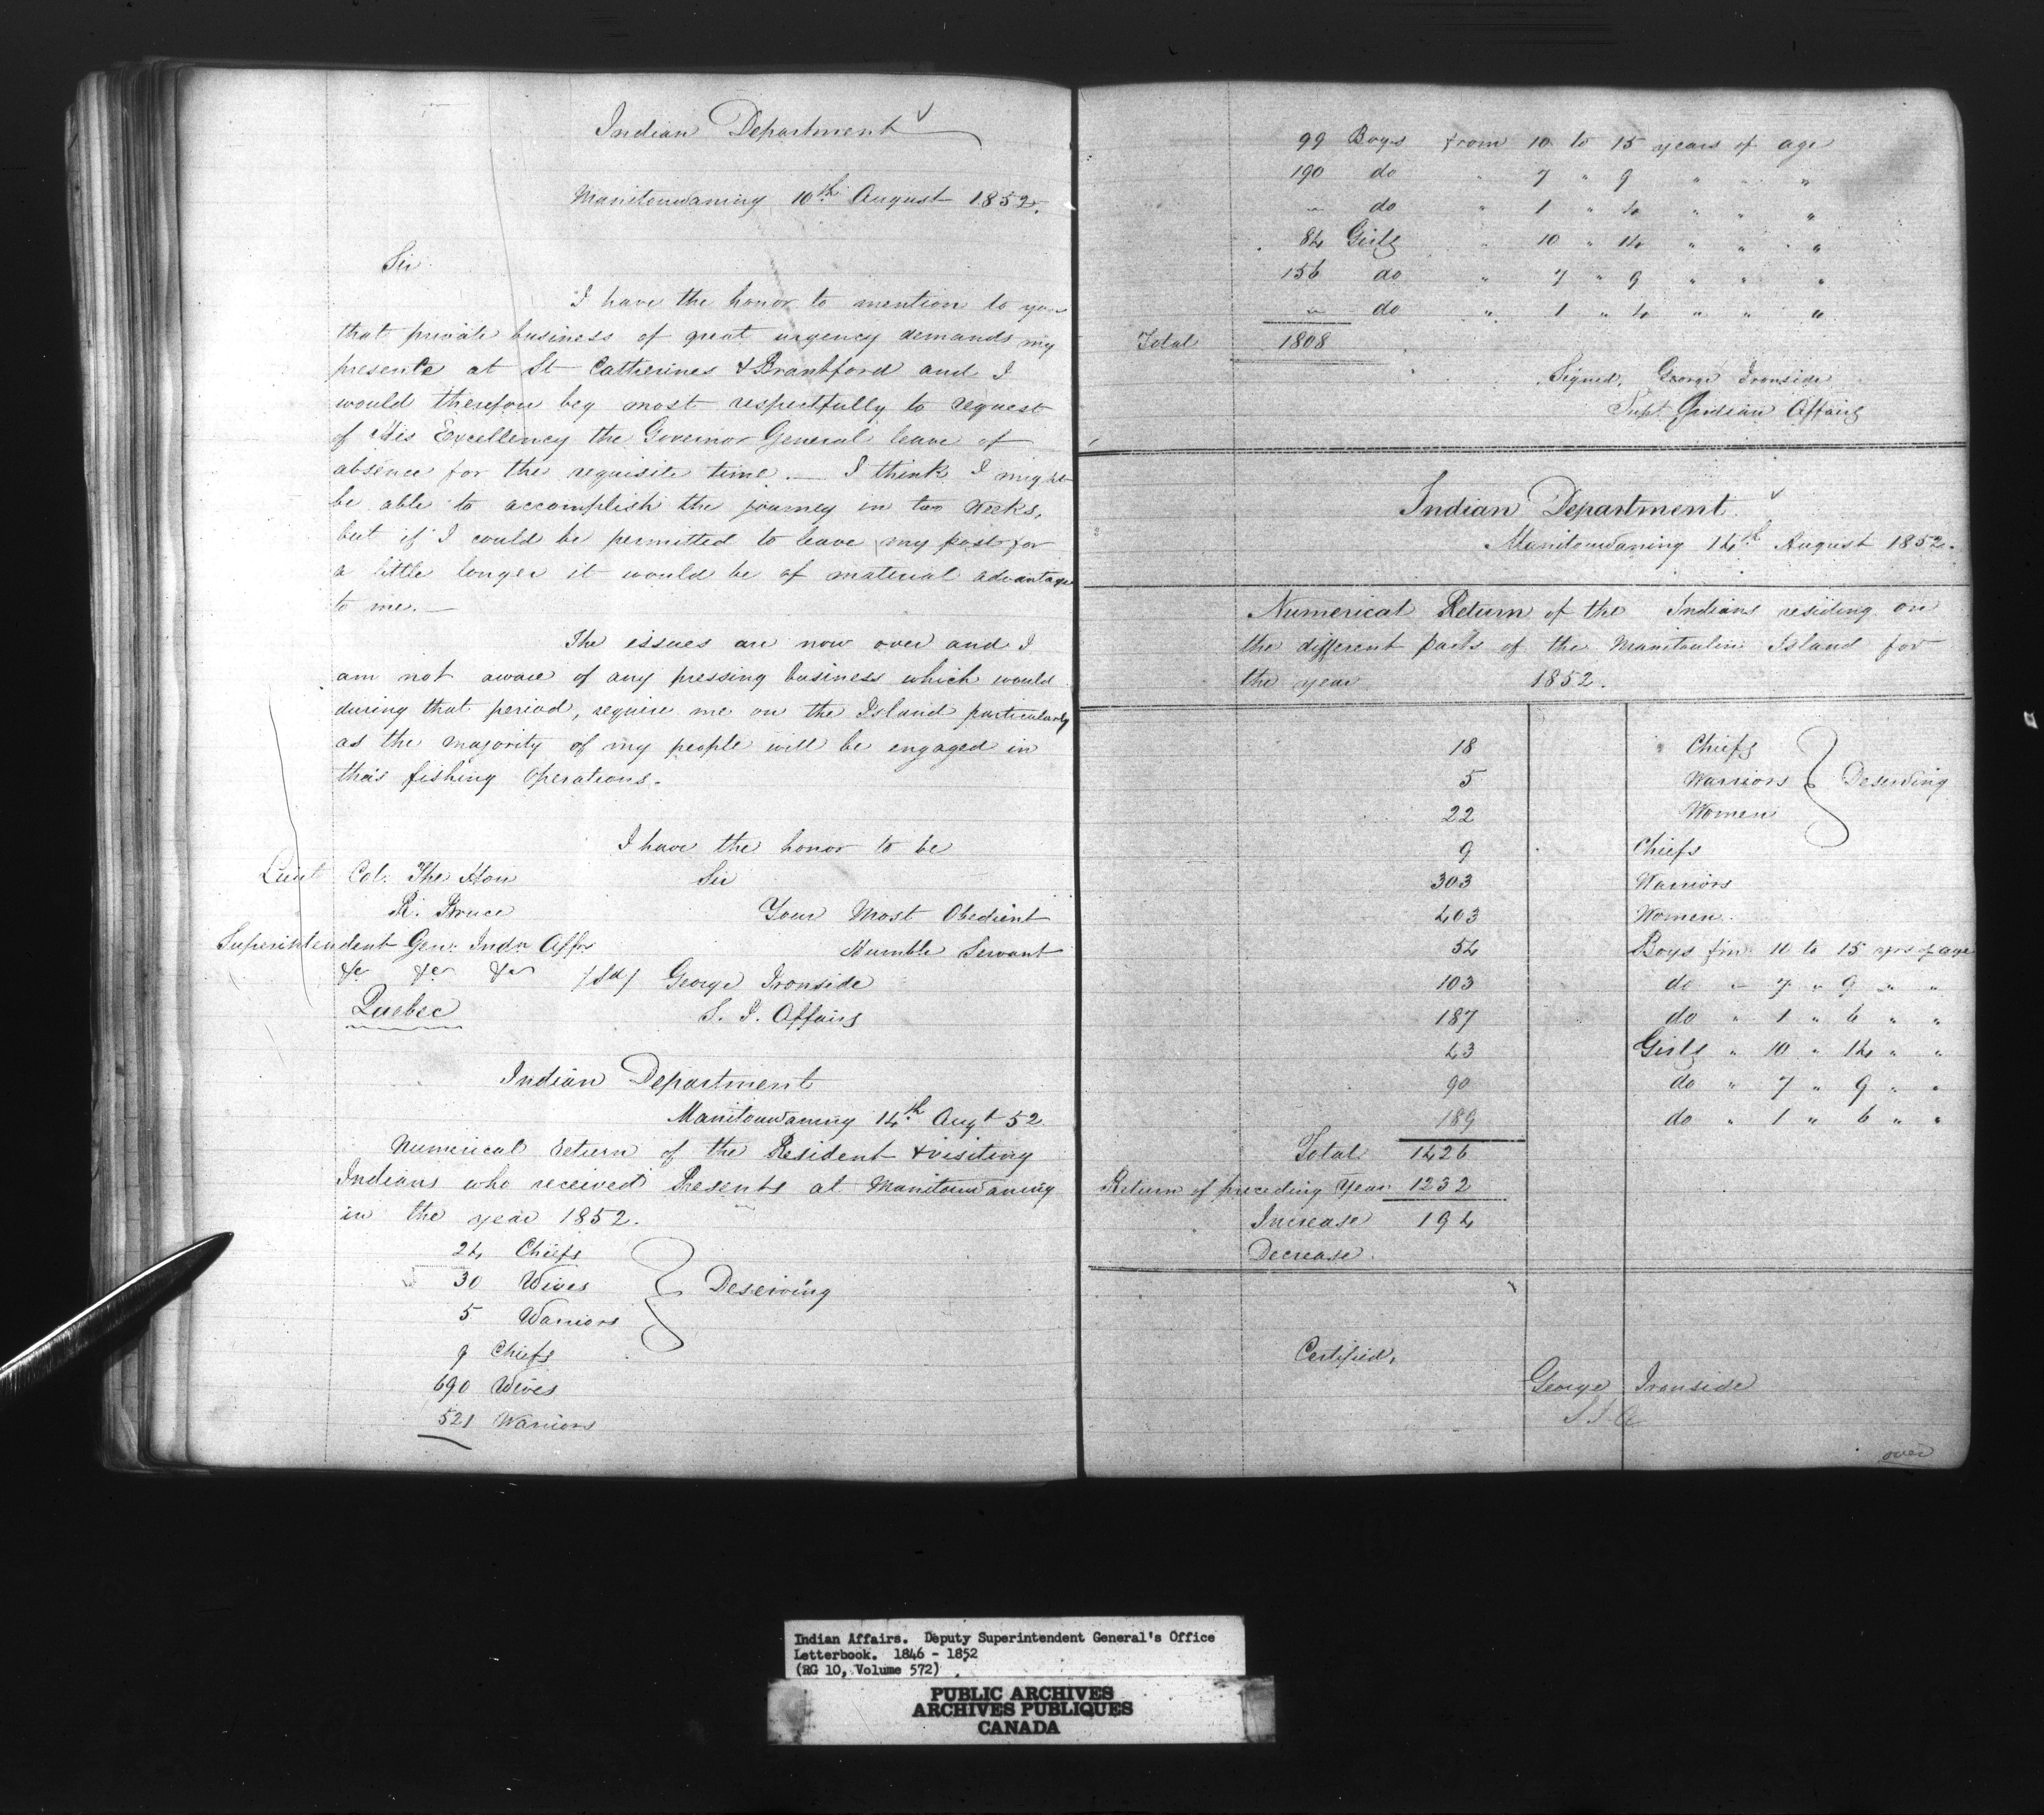 Indian Department
Manitowaning 10th August 1852.
Sir
I have the honor to mention to you
that private business of great urgency demands my
presence at St Catherines & Brantford and I
would therefore beg most respectfully to request
of His Excellency the Governor General leave of
absence for the requisite time. — I think I might
be able to accomplish the journey in two Weeks,
but if I could be permitted to leave my post for
a little longer it would be of material advantage
to me. —
The issues are now over and I
am not aware of any pressing business which would
during that period, require me on the Island particularly
as the majority of my people will be engaged in
their fishing operations.
I have the honor to be
Lieut Col. The Hon Sir
R. Bruce Your Most Obedient
Superintendent Gen. Indn Affrs Humble Servant
&c &c &c /Sd/ George Ironside
Quebec S. I. Affairs
Indian Department
Manitowaning 14th Augt 52
Numerical return of the Resident & visiting
Indians who received Presents at Manitowaning
in the year 1852.
24 Chiefs
30 Wives } Deserving
5 Warriors
9 Chiefs
690 Wives
521 Warriors
99 Boys from 10 to 15 years of age
190 do " 7 " 9 " " "
" do " 1 " 6 " " "
84 Girls " 10 " 14 " " "
156 do " 7 " 9 " " "
" do " 1 " 6 " " "
Total 1808
Signed, George Ironside
Supt Indian Affairs
Indian Department
Manitowaning 14th August 1852.
Numerical Return of the Indians residing on
the different parts of the Manitoulin Island for
the year 1852.
18 Chiefs
5 Warriors } Deserving
22 Women
9 Chiefs
303 Warriors
403 Women
54 Boys fm 10 to 15 yrs of age
103 do " 7 " 9 " "
187 do " 1 " 6 " "
43 Girls " 10 " 14 " "
90 do " 7 " 9 " "
189 do " 1 " 6 " "
Total 1426
Return of preceding Year 1232
Increase 194
Decrease
Certified,
George Ironside
S I A
over
Indian Affairs. Deputy Superintendent General's Office
Letterbook. 1846 - 1852
(RG 10, Volume 572)
PUBLIC ARCHIVES
ARCHIVES PUBLIQUES
CANADA